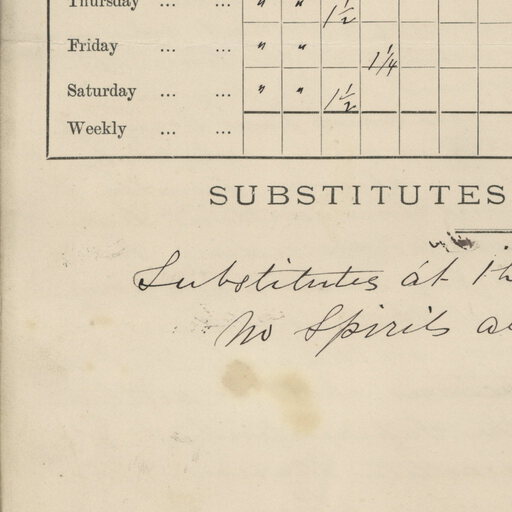 Thursday ... ... " " 1½
Friday ... ... " " 1¼
Saturday ... ... " " 1½
Weekly ... ...
SUBSTITUTES
Substitutes at
No Spirits